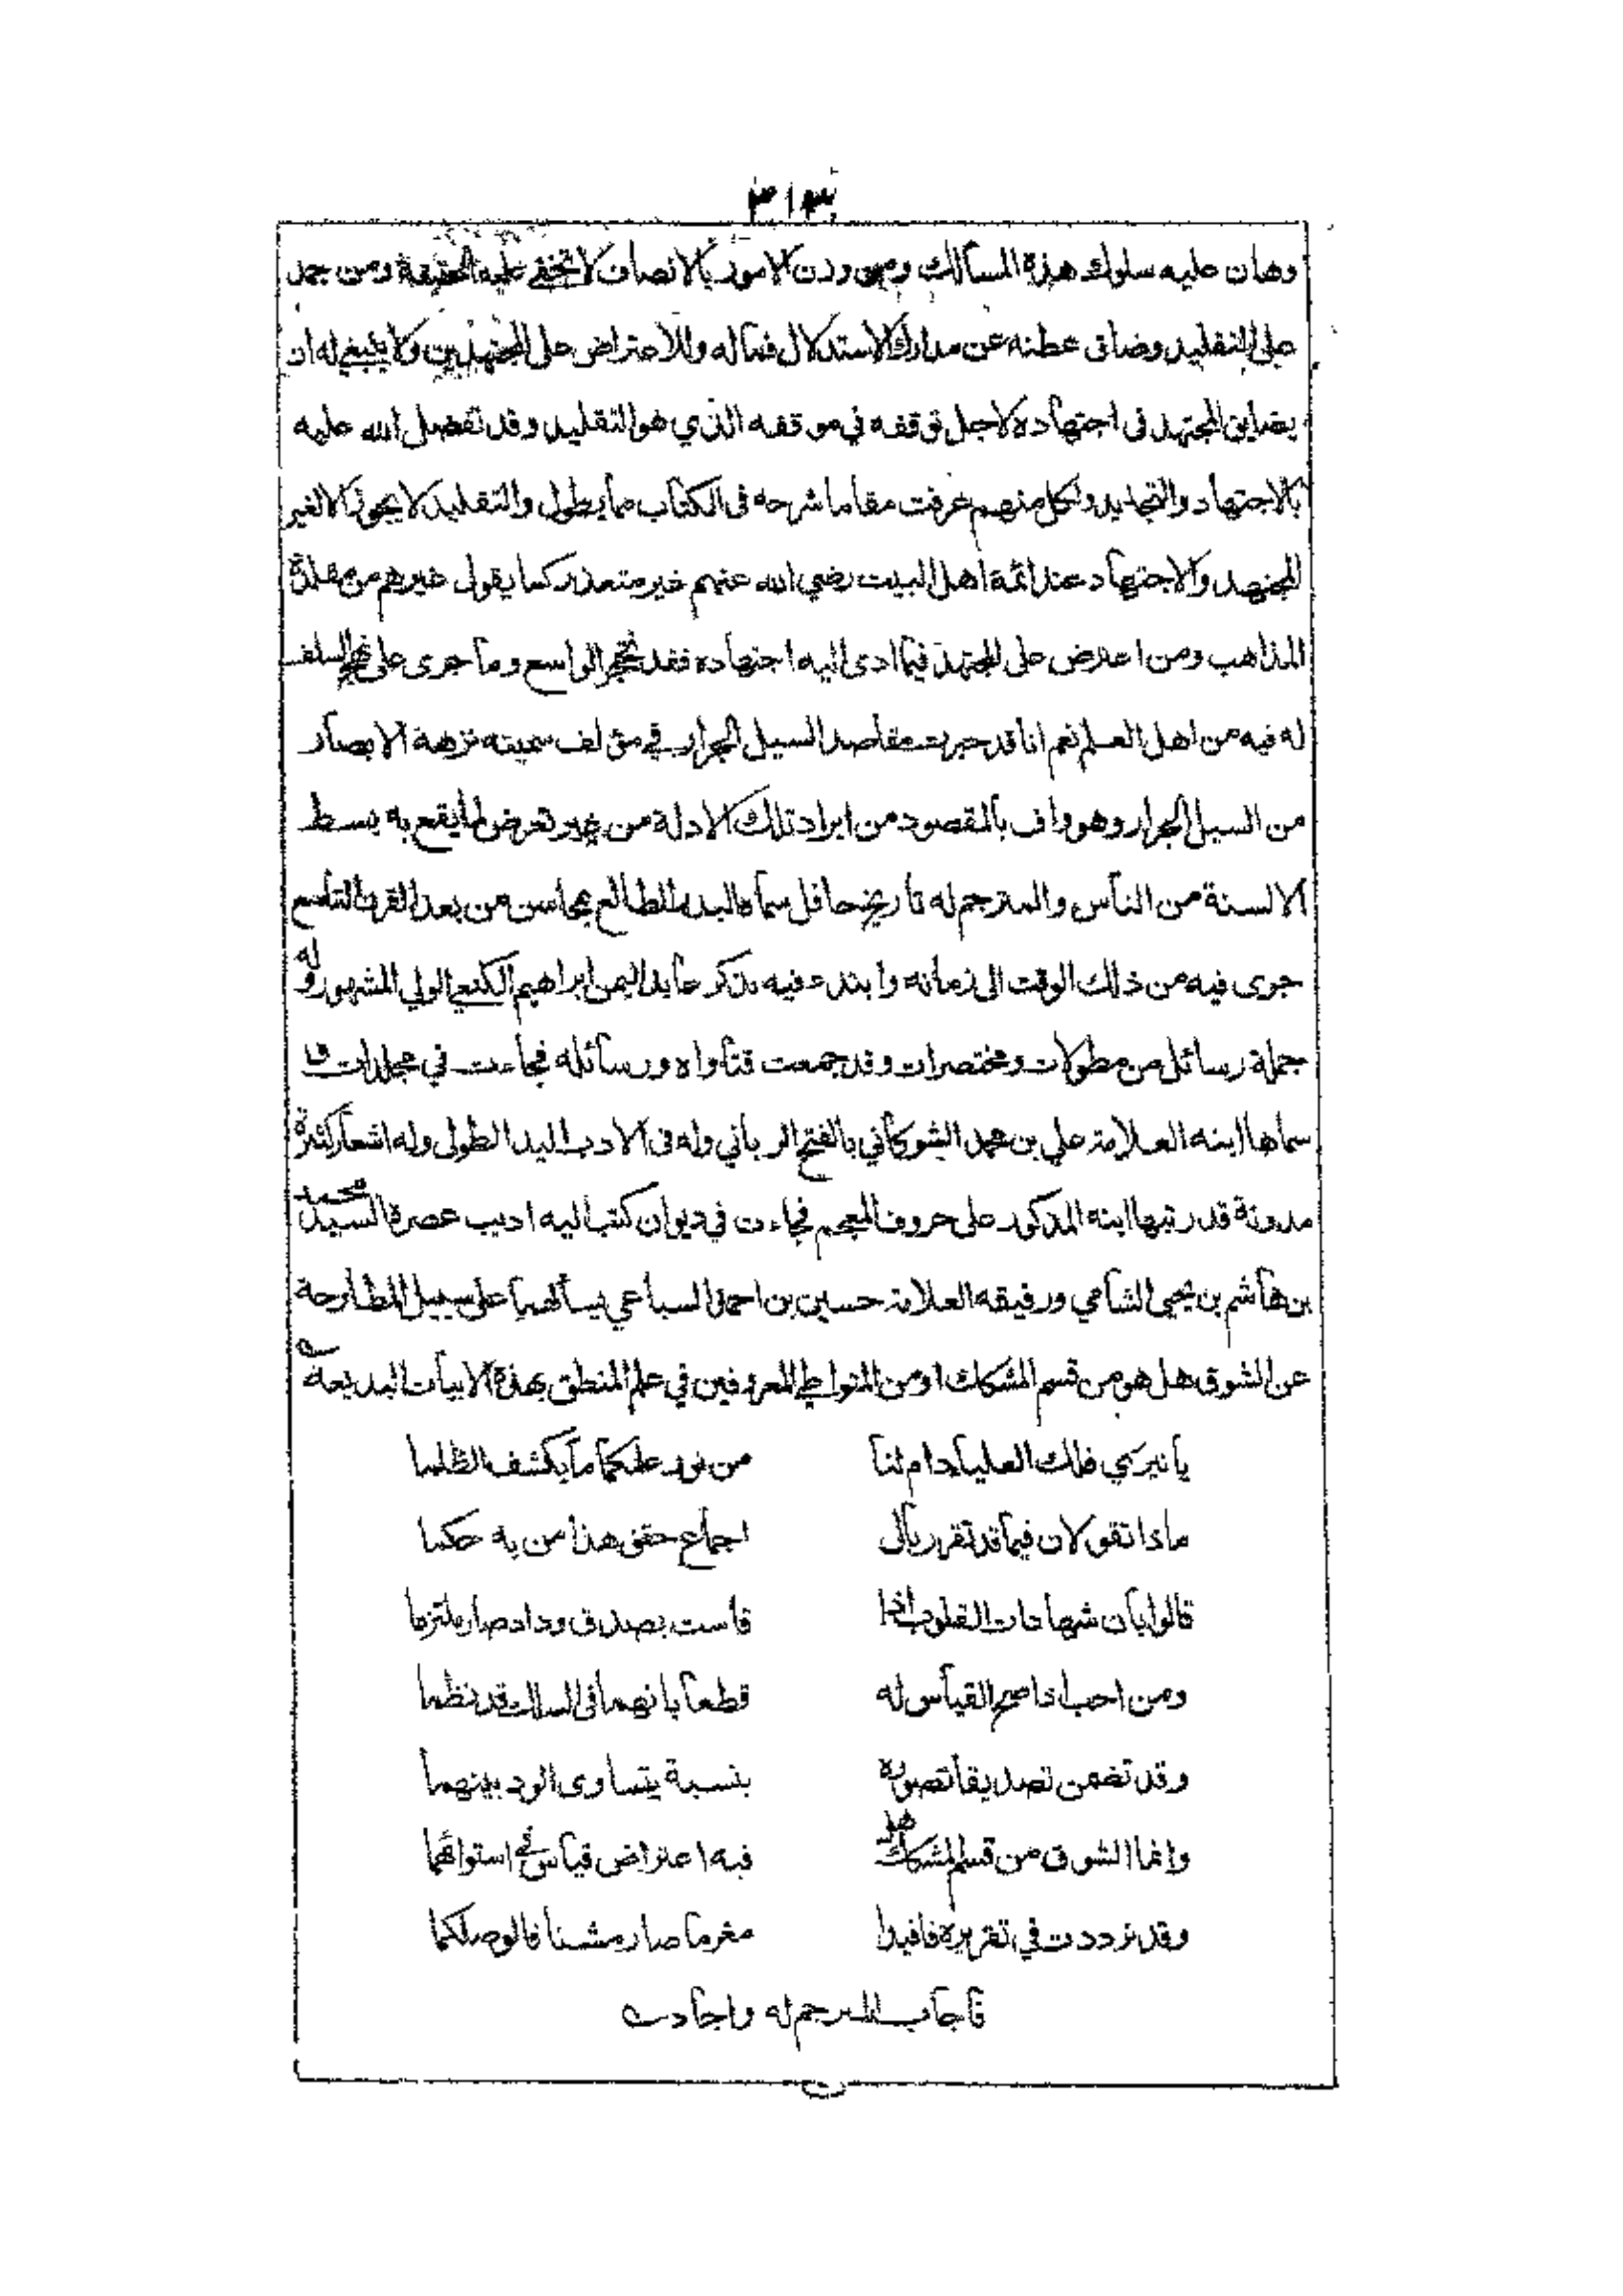 ٣١٣
وهان عليه سلوك هذه المسالك ومن وزن الامور بالانصاف لا تخفى عليه الحقيقة ومن جمد
على التقليد وضاق عطنه عن مدارك الاستدلال فماله وللاعتراض على المجتهدين ولا ينبغي له ان
يضايق المجتهد فى اجتهاده لاجل توقفه في موقفه الذي هو التقليد وقد تفضل الله عليه
بالاجتهاد والتقليد ولكل منهم عرفت مقاما شرحه فى الكتاب مما يطول والتقليد لا يجوز الا لغير
المجتهد والاجتهاد عند ائمة اهل البيت رضي الله عنهم غير متعذر كما يقول غيرهم من مقلدة
المذاهب ومن اعترض على المجتهد فيما ادى اليه اجتهاده فقد تحجر الواسع وما جرى على نهج السلف
له فيه من اهل العلم نعم انا قد حررت مقاصد السيل الجرار في مؤلف سميته نزهة الابصار
من السيل الجرار وهو واف بالمقصود من ايراد تلك الادلة من غير تعرض لما يقع به بسط
الالسنة من الناس والمترجم له تاريخ حافل سماه البدر الطالع بمحاسن من بعد القرن التاسع
جرى فيه من ذلك الوقت الى زمانه وابتدء فيه بذكر عابد اليمن ابراهيم الكنعي الولي المشهور وله
جملة رسائل من مطولات ومختصرات وقد جمعت فتاواه ورسائله فجاءت في مجلدات
سماها ابنه العلامة علي بن محمد الشوكاني بالفتح الرباني وله فى الادب اليد الطولى وله اشعار كثيرة
مدونة قد رتبها ابنه المذكور على حروف المعجم فجاءت في ديوان كتب اليه اديب عصره السيد محمد
بن هاشم بن يحيى الشامي ورفيقه العلامة حسين بن احمد السباعي يسالهما على سبيل المطارحة
عن الشوق هل هو من قسم المشكك او من المتواطي المعروفين في علم المنطق بهذة الابيات البديعة
يا نيري فلك العليا دام لنا من نور علمكما ما يكشف الظلما
ماذا تقولان فيما قد تقرر بال اجماع حقق هذا من به حكما
قالوا بان شهادات القلوب اذا قاست بصدق وداد صار ملتزما
ومن احب اذا صح القياس له قطعا بانهما فى السلك قد نظما
وقد تضمن تصديقا تصوره بنسبة يتساوى الود بينهما
وانما الشوق من قسم المشكك هل فيه اعتراض قياس في استوائهما
وقد ترددت في تقريره فافيدا مغرما صار مشنا فالوصلكما
فاجاب المترجم له واجاد